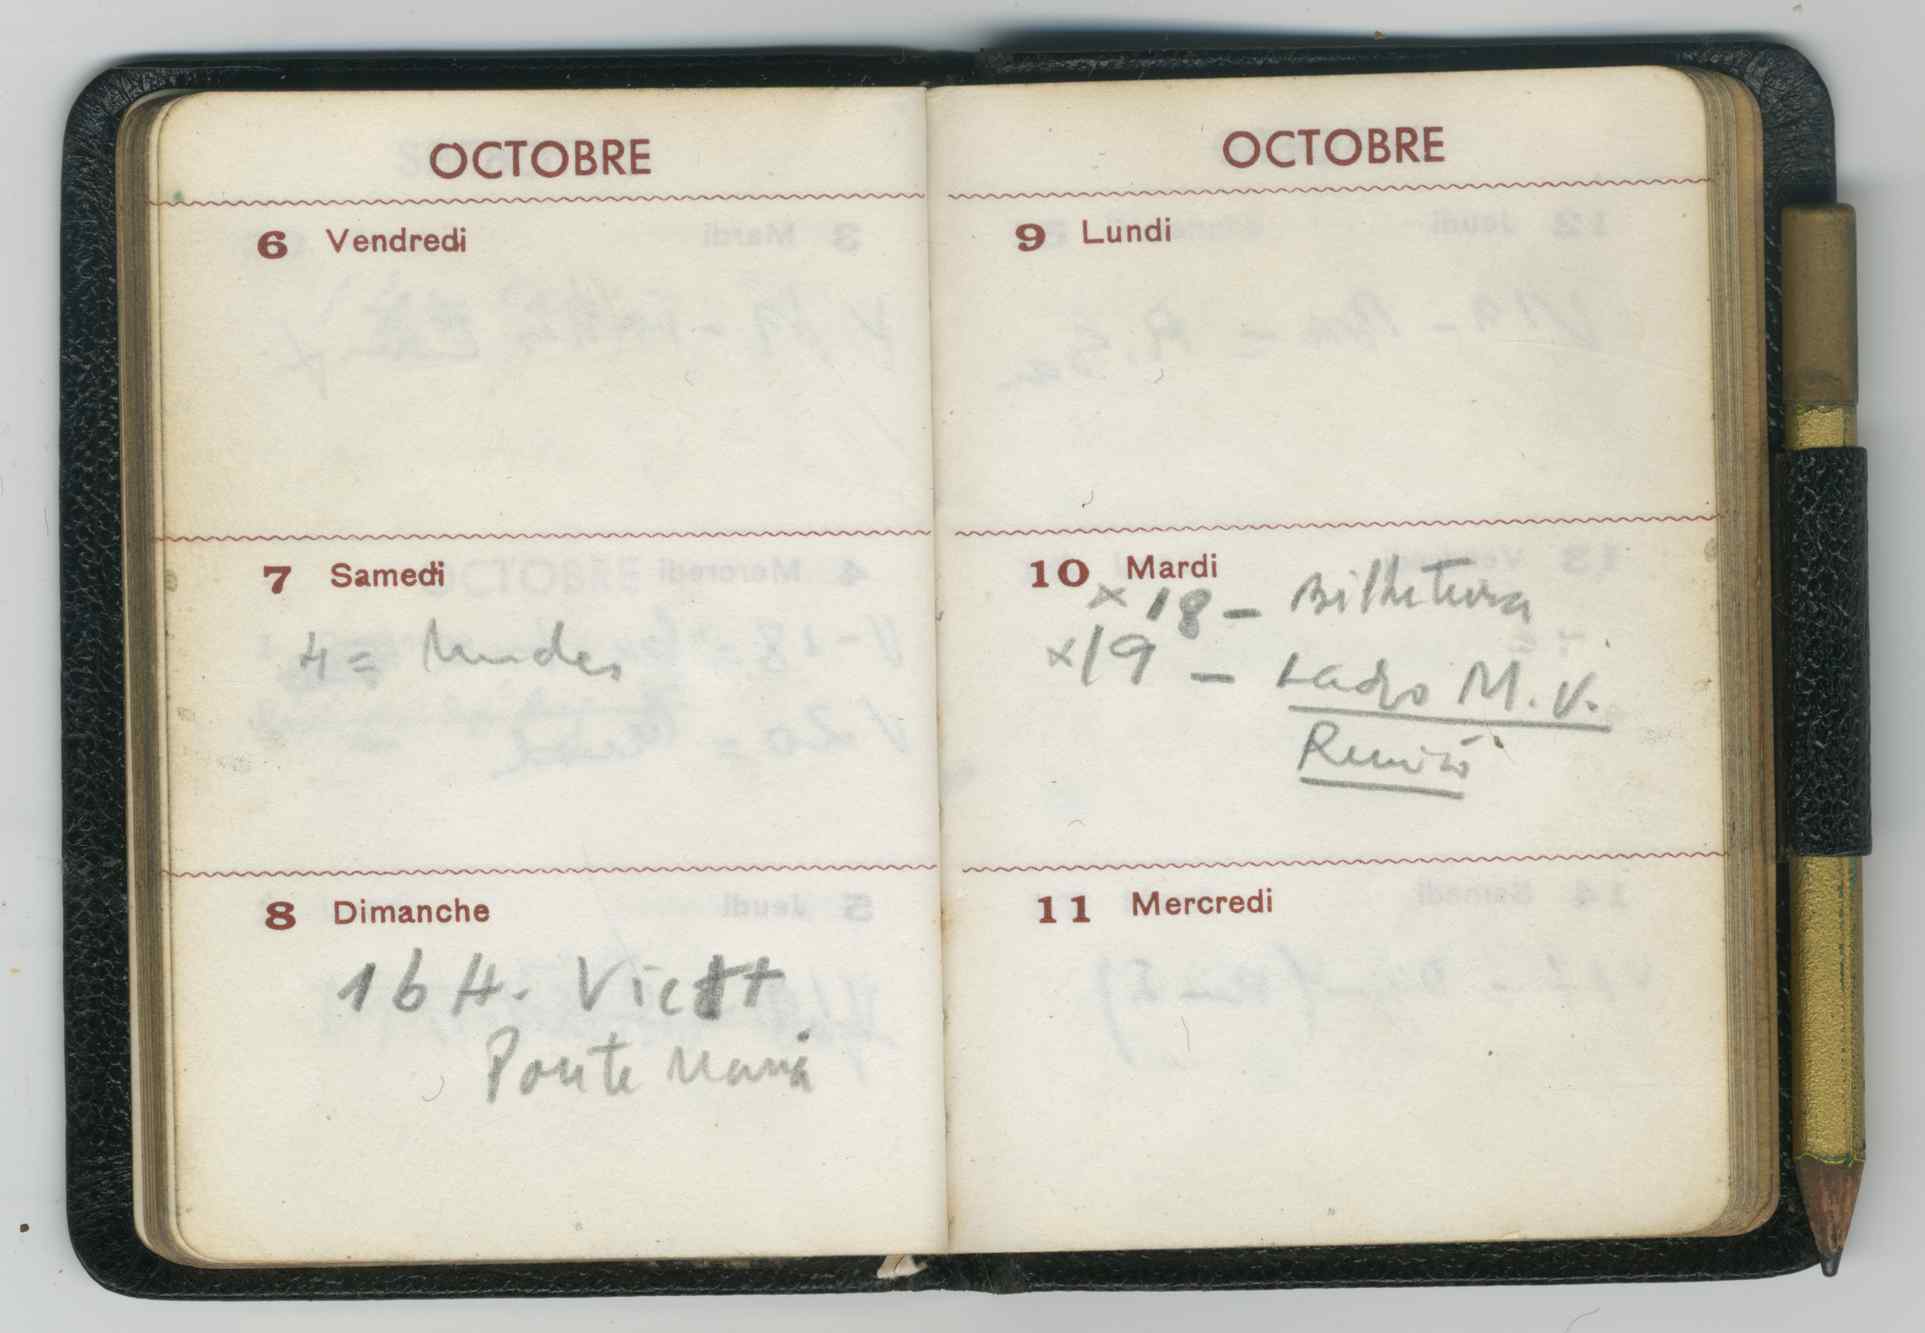 OCTOBRE
6 Vendredi
7 Samedi
4 =
8 Dimanche
16 H. Vict
Ponte Maria
OCTOBRE
9 Lundi
10 Mardi
x 18 - Bilheteira
x 19 - Ladro M. V.
11 Mercredi